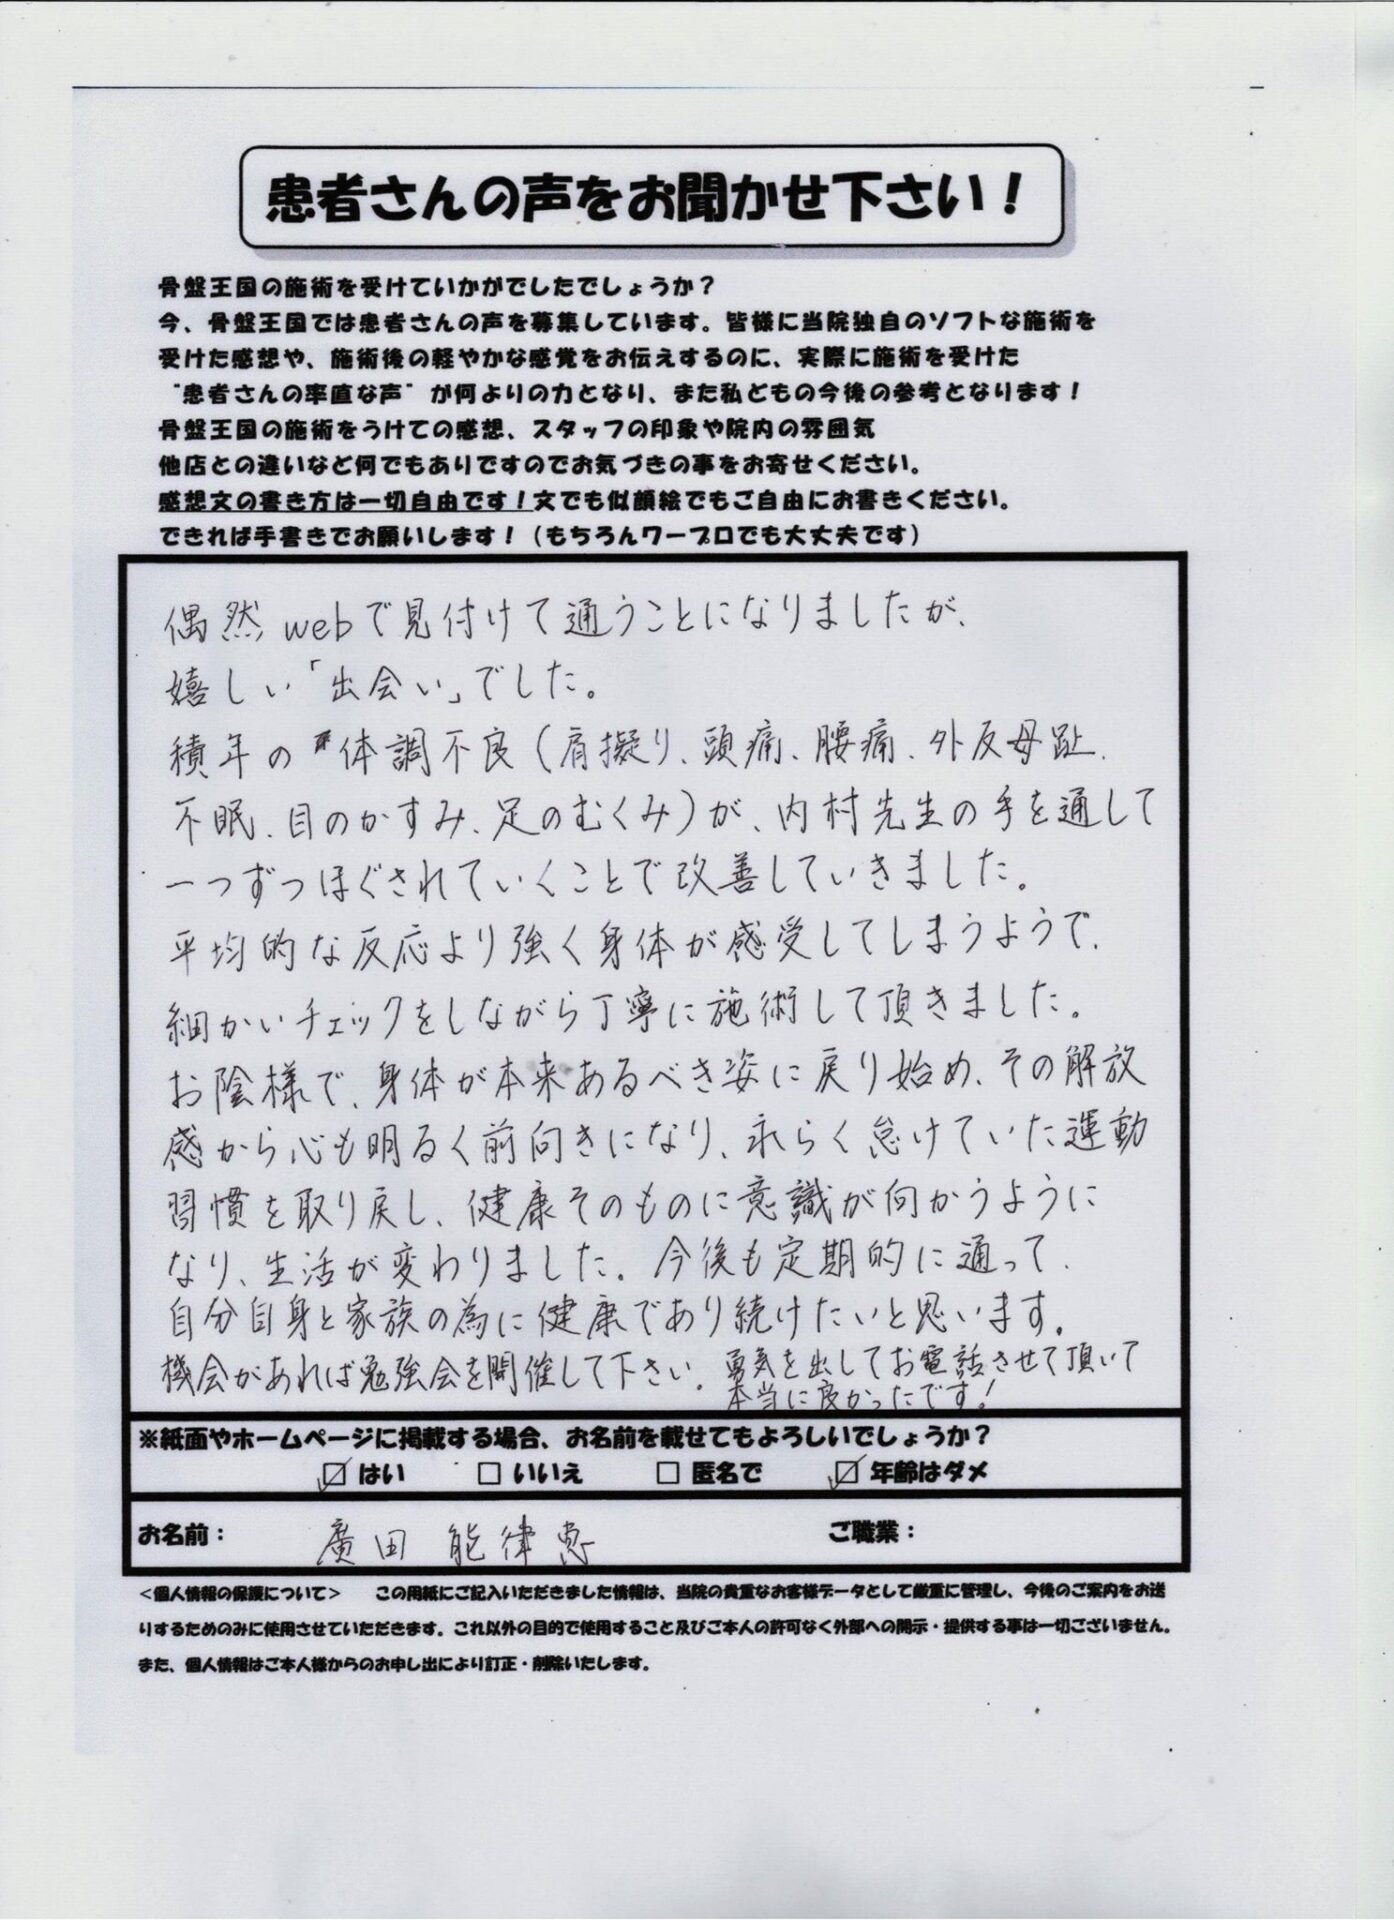 患者さんの声をお聞かせ下さい!
骨盤王国の施術を受けていかがでしたでしょうか?
今、骨盤王国では患者さんの声を募集しています。皆様に当院独自のソフトな施術を
受けた感想や、施術後の軽やかな感覚をお伝えするのに、実際に施術を受けた
"患者さんの率直な声"が何よりの力となり、また私どもの今後の参考となります!
骨盤王国の施術をうけての感想、スタッフの印象や院内の雰囲気
他店との違いなど何でもありですのでお気づきの事をお寄せください。
感想文の書き方は一切自由です!文でも似顔絵でもご自由にお書きください。
できれば手書きでお願いします!(もちろんワープロでも大丈夫です)
偶然webで見付けて通うことになりましたが、
嬉しい「出会い」でした。
積年の体調不良(肩擬り、頭痛、腰痛、外反母趾、
不眠、目のかすみ、足のむくみ)が、内村先生の手を通して
一つずつほぐされていくことで改善していきました。
平均的な反応より強く身体が感受してしまうようで、
細かいチェックをしながら丁寧に施術して頂きました。
お陰様で、身体が本来あるべき姿に戻り始め、その解放
感から心も明るく前向きになり、永らく怠けていた運動
習慣を取り戻し、健康そのものに意識が向かうように
なり、生活が変わりました。今後も定期的に通って、
自分自身と家族の為に健康であり続けたいと思います。
機会があれば勉強会を開催して下さい。勇気を出してお電話させて頂いて
本当に良かったです!
※紙面やホームページに掲載する場合、お名前を載せてもよろしいでしょうか?
☑ はい □ いいえ □ 匿名で ☑ 年齢はダメ
お名前: 廣田 能律恵 ご職業:
<個人情報の保護について> この用紙にご記入いただきました情報は、当院の貴重なお客様データとして厳重に管理し、今後のご案内をお送
りするためのみに使用させていただきます。これ以外の目的で使用すること及びご本人の許可なく外部への開示・提供する事は一切ございません。
また、個人情報はご本人様からのお申し出により訂正・削除いたします。